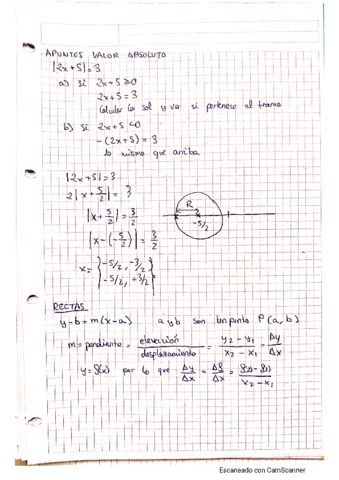 APUNTES VALOR ABSOLUTO
|2x+5|=3
a) si 2x+5≥0
2x+5=3
Calcular las sol y ver si pertenece al tramo
b) si 2x+5<0
-(2x+5)=3
Lo mismo que arriba
|2x+5|=3
2|x+5/2|=3
|x+5/2|=3/2
|x-(-5/2)|=3/2
x={-5/2, -3/2
-5/2, +3/2}
R
-5/2
RECTAS
y-b=m(x-a) a y b son un punto P(a,b)
m=pendiente= elevación/desplazamiento = y2-y1/x2-x1 = Δy/Δx
y=f(x) por lo que Δy/Δx = Δf/Δx =
x2-x1
Escaneado con CamScanner